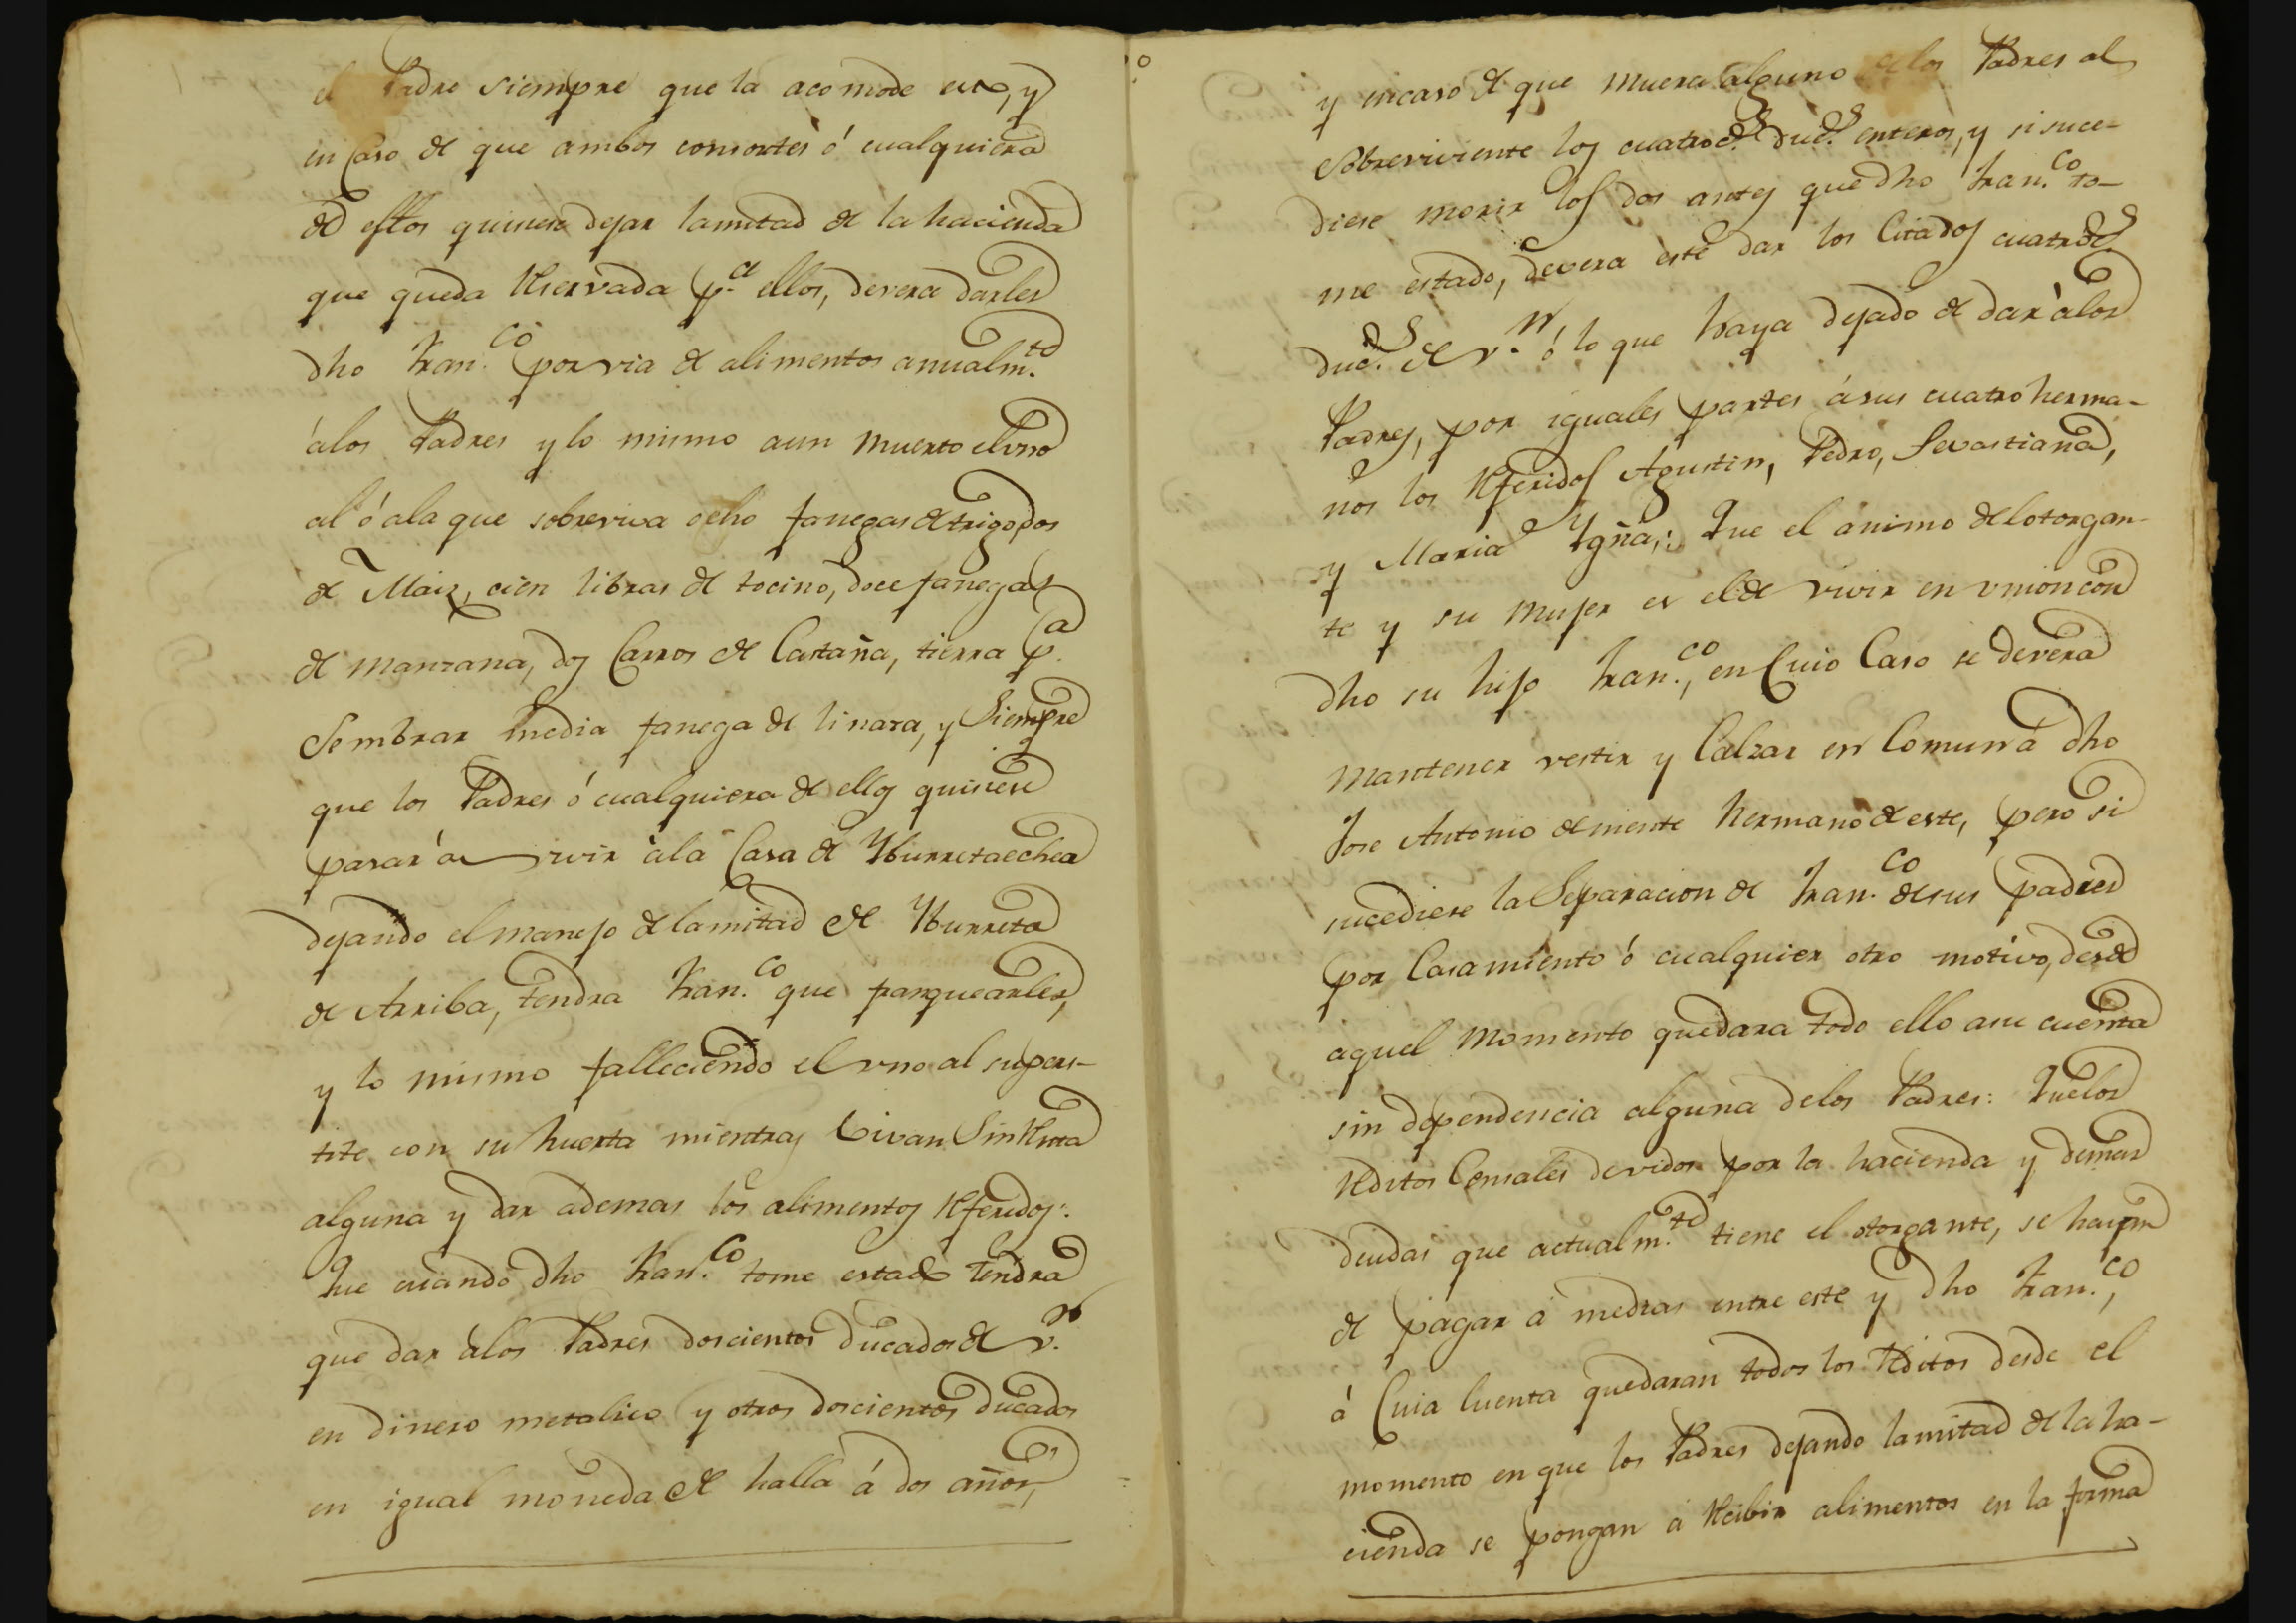 el Padre siempre que la acomode esto, y
en Caso de que ambos consortes ó cualquiera
de estos quisiere dejar la mitad de la hacienda
que queda Rservada p.ª ellos, devera darles
dho Fran.co por via de alimentos anualm.te
á los Padres y lo mismo aun muerto el vno
al ó ala que sobreviva ocho fanegas de trigo, dos
de Maiz, cien libras de tocino, doce fanegas
de manzana, dos Carros de Castaña, tierra p.a
Sembrar media fanega de linaza, y Siempre
que los Padres ó cualquiera de ellos quisiere
pasar á vivir á la Casa de Yburretaechea
dejando el manejo de la mitad de Yburreta
de Arriba, tendra Fran.co que franquearles,
y lo mismo falleciendo el vno al supers-
tite con su huerta mientras vivan Sin Rnta
alguna y dar ademas los alimentos Rferidos:
Que cuando dho Fran.co tome estado tendra
que dar á los Padres doscientos ducados de v.n
en dinero metalico y otros doscientos ducados
en igual moneda de halla á dos años,
y en caso de que muera alguno de los Padres al
Sobreviviente los cuatroc.s duc.s enteros, y si suce-
diese morir los dos antes que dho Fran.co to-
me estado, devera este dar los Citados cuatroc.s
duc.s de v.n ó lo que haya dejado de dar á los
Padres, por iguales partes á sus cuatro herma-
nos los Rferidos Agustin, Pedro, Sevastiana,
y Maria Ygña,: Que el animo del otorgan-
te y su mujer es el de vivir en vnion con
dho su hijo Fran.co, en Cuio Caso se devera
mantener vestir y Calzar en Comun á dho
Jose Antonio demente hermano de este, pero si
sucediere la Separacion de Fran.co de sus padres
por Casamiento ó cualquier otro motivo, desde
aquel momento quedara todo ello a su cuenta
sin dependencia alguna de los Padres: Que los
Rditos Censales devidos por la hacienda y demas
deudas que actualm.te tiene el otorgante, se hayan
de pagar á medias entre este y dho Fran.co,
á Cuia Cuenta quedaran todos los Rditos desde el
momento en que los Padres dejando la mitad de la ha-
cienda se pongan á Rcibir alimentos en la forma